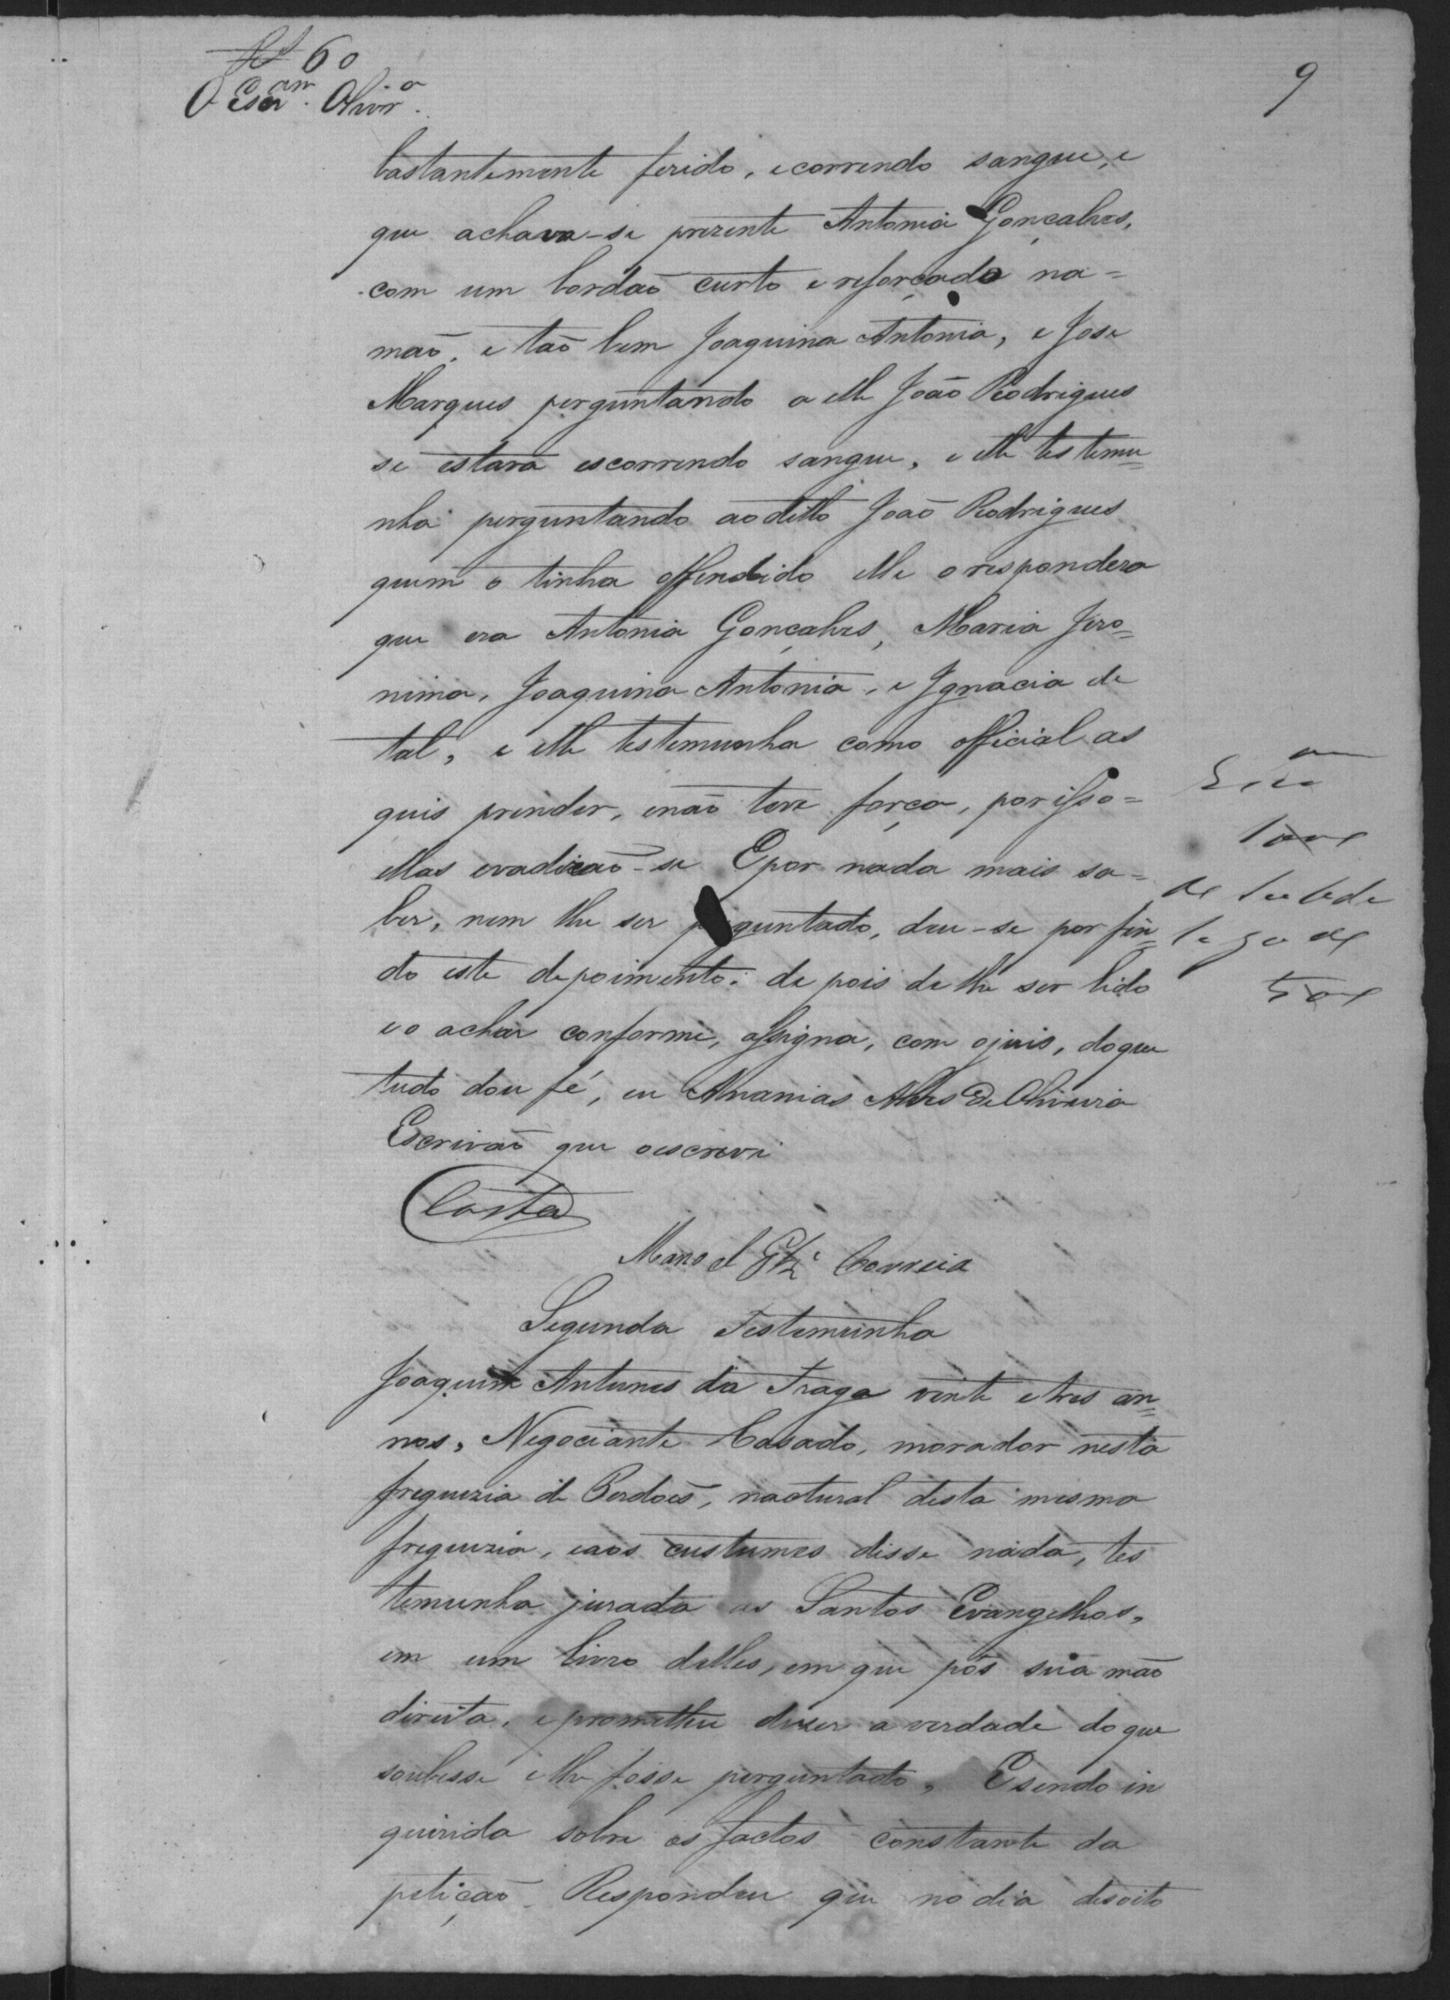 60
9
O Escr.am Olivr.a
bastantemente ferido, e correndo sangue, e
que achava-se prezente Antonia Gonçalves,
com um bordaõ curto e reforçado na=
maõ, e taõ bem Joaquina Antonia, e Jose
Marques perguntando a elle João Rodrigues
se estava escorrendo sangue, e elle testemu=
nha perguntando ao ditto Joaõ Rodrigues
quem o tinha offendido elle o respondera
que era Antonia Gonçalves, Maria Jero=
nima, Joaquina Antonia, e Ignacia de
tal, e elle testemunha como official as
quis prender, e não teve força, por isso=
ellas evadiraõ-se E por nada mais sa=
ber, nem lhe ser perguntado, deu-se por fin=
do este depoimento: depois de lhe ser lido
e o achar conforme, assigna, com o juis, do que
tudo dou fé, eu Ananias Alves de Oliveira
Escrivaõ que o escrevi
Costa
Manoel Glz Correia
Segunda Testemunha
Joaquim Antunes da Fraga vinte e tres an=
nos, Negociante Casado, morador nesta
freguezia de Perdoẽs, nactural desta mesma
freguezia, e aos custumes disse nada, tes
temunha jurada os Santos Evangelhos,
em um livro delles, em que pôs sua mão
direita, e prometteu dizer a verdade do que
soubesse e lhe fosse perguntado, E sendo in
querida sobre os factos constante da
petiçaõ. Respondeu que no dia desoito